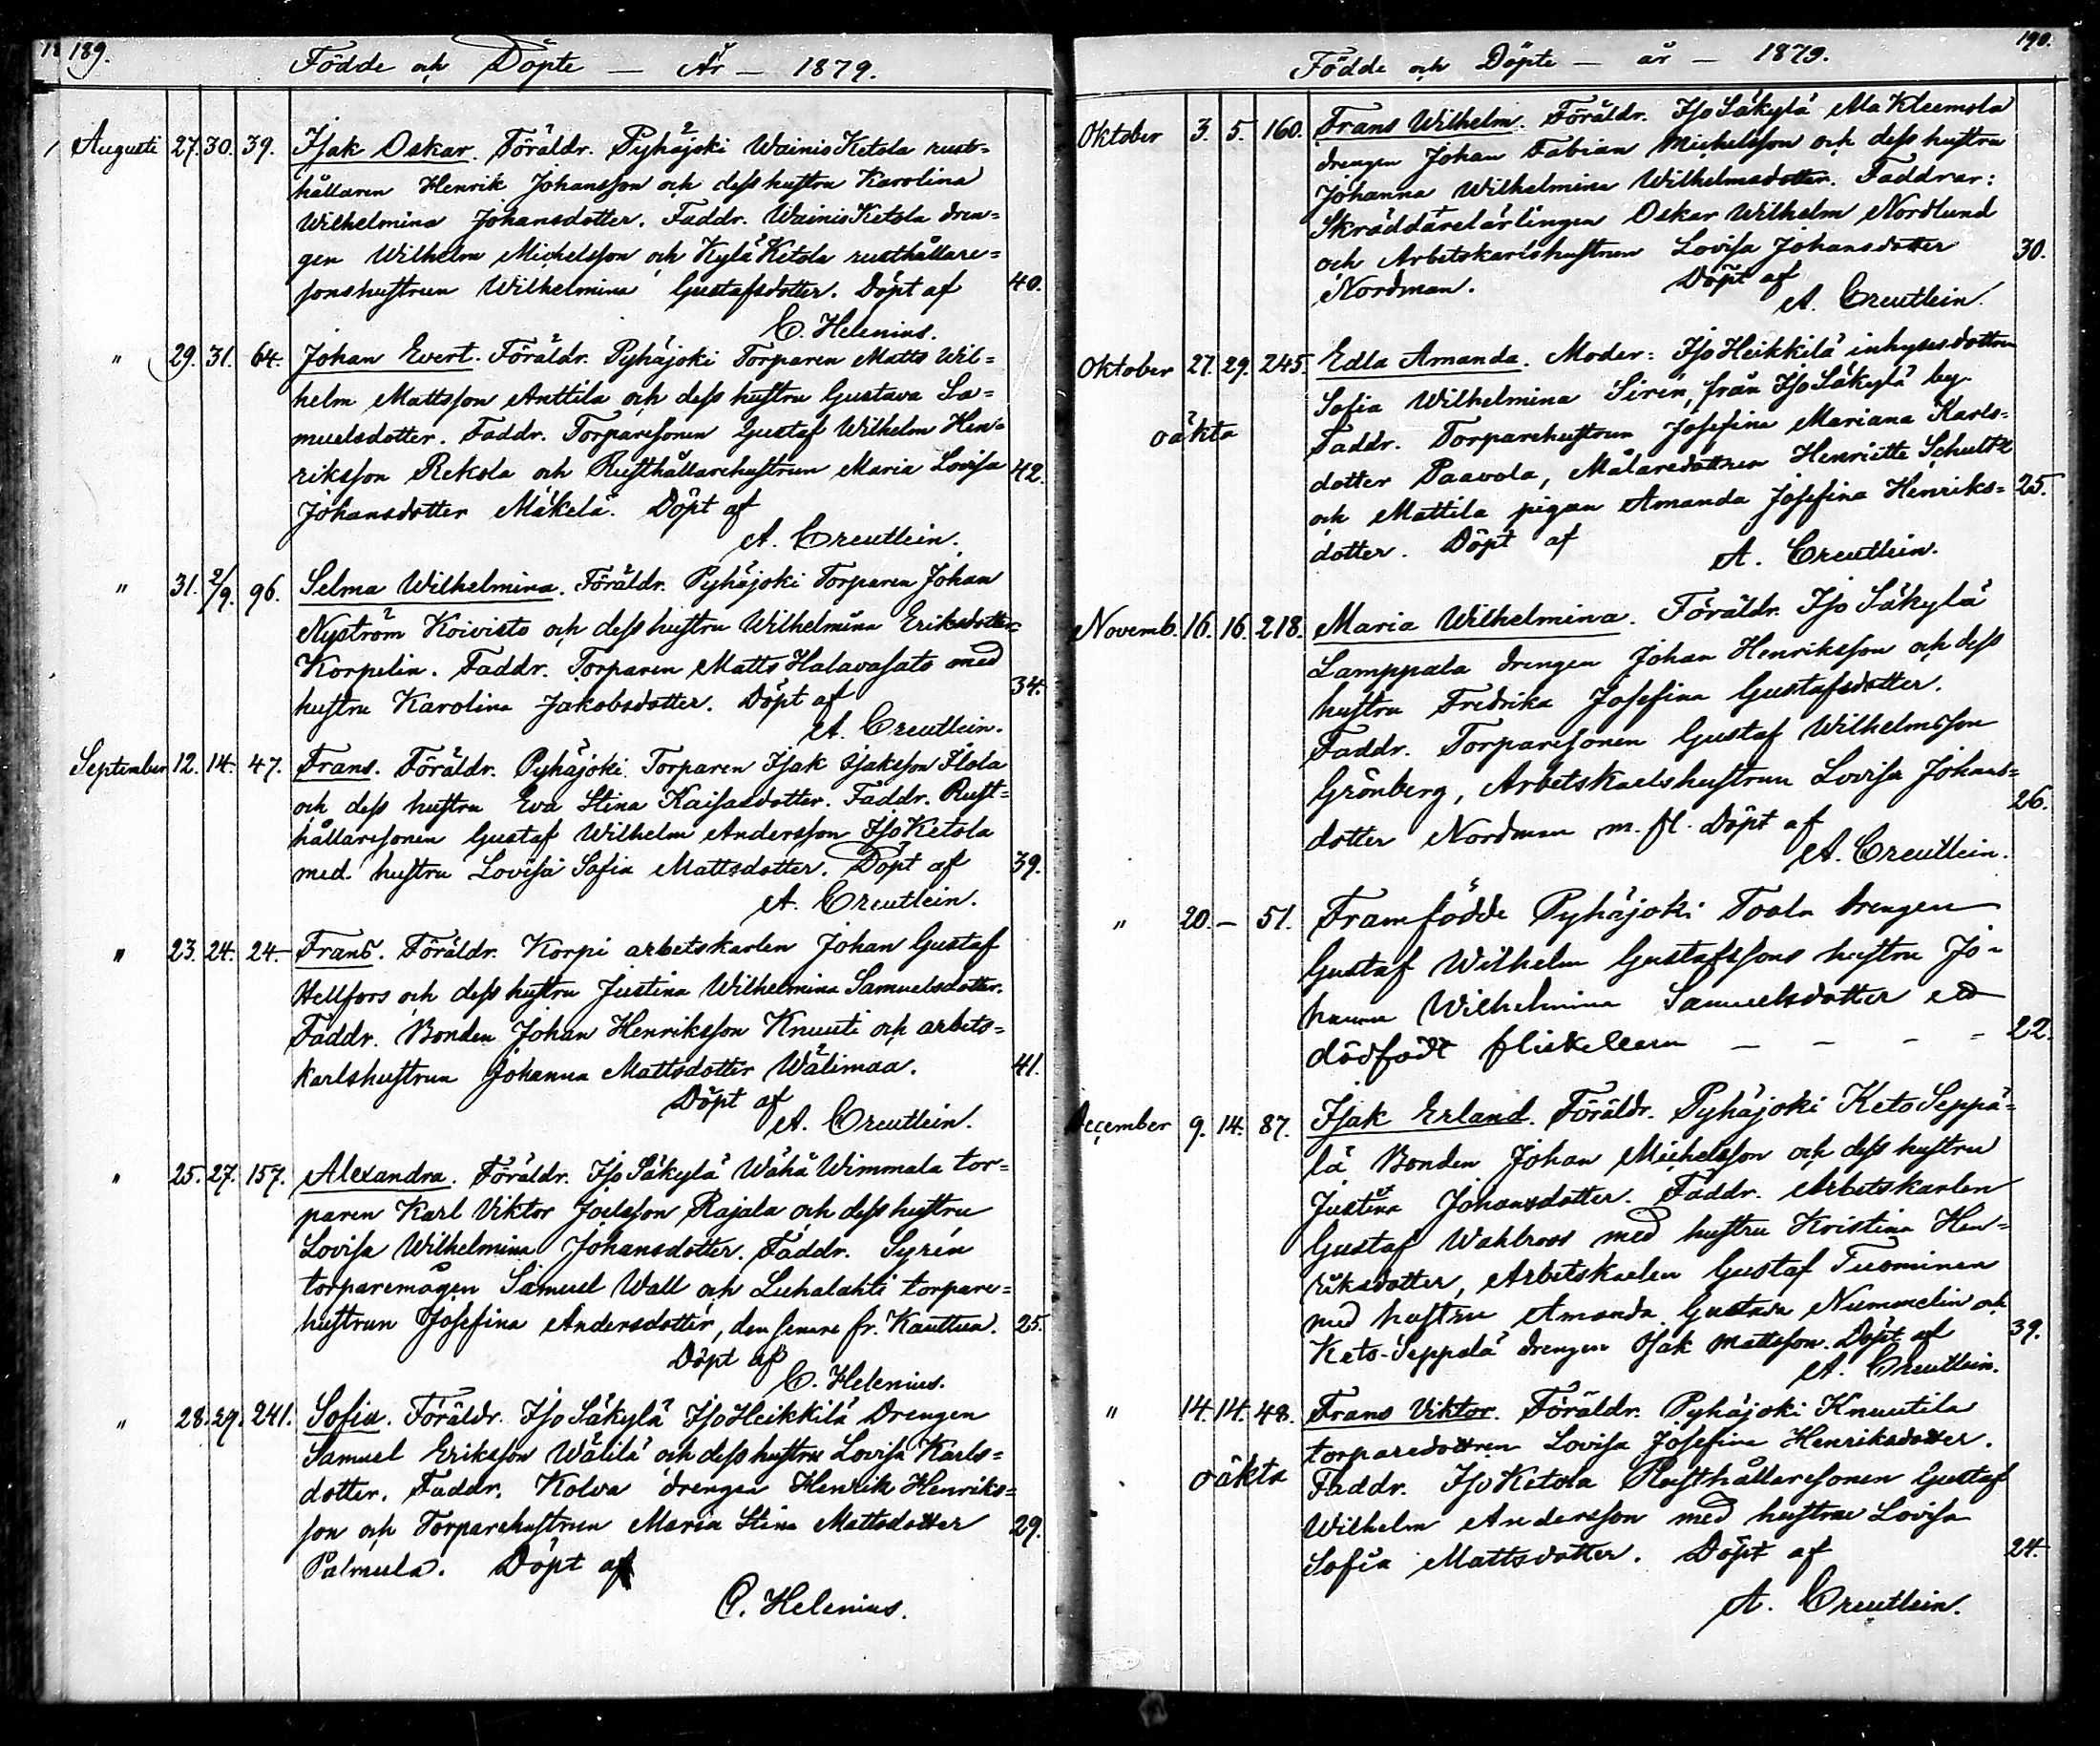 189.
Födde och Döpte — År — 1879.
Augusti 27. 30. 39. Isak Oskar. Föräldr. Pyhäjoki Wainio Ketola rust=
hållaren Henrik Johansson och dess hustru Karolina
Wilhelmina Johansdotter. Faddr. Wainio Ketola dren=
gen Wilhelm Michelsson och Kylä Ketola rusthållare=
sonshustrun Wilhelmina Gustafsdotter. Döpt af 40.
C. Helenius.
" 29. 31. 64. Johan Evert. Föräldr. Pyhäjoki Torparen Matts Wil=
helm Mattsson Anttila och dess hustru Gustava Sa=
muelsdotter. Faddr. Torparesonen Gustaf Wilhelm Hen=
riksson Rekola och Rusthållarehustrun Maria Lovisa 42.
Johansdotter Mäkelä. Döpt af
A. Creutlein.
" 31. 2/9. 96. Selma Wilhelmina. Föräldr. Pyhäjoki Torparen Johan
Nyström Koivisto och dess hustru Wilhelmina Eriksdotter
Korpelin. Faddr. Torparen Matts Halavasato med
hustru Karolina Jakobsdotter. Döpt af 34.
A. Creutlein.
September 12. 14. 47. Frans. Föräldr. Pyhäjoki Torparen Isak Isaksson Ilola
och dess hustru Eva Stina Kaisasdotter. Faddr. Rust=
hållaresonen Gustaf Wilhelm Andersson Iso Ketola
med hustru Lovisa Sofia Mattsdotter. Döpt af 39.
A. Creutlein.
" 23. 24. 24. Frans. Föräldr. Korpi arbetskarlen Johan Gustaf
Hellfors och dess hustru Justina Wilhelmina Samuelsdotter.
Faddr. Bonden Johan Henriksson Knuuti och arbets=
karlshustrun Johanna Mattsdotter Wälimaa. 41.
Döpt af
A. Creutlein.
" 25. 27. 157. Alexandra. Föräldr. Iso Säkylä Wähä Wimmala tor=
paren Karl Viktor Joelsson Rajala och dess hustru
Lovisa Wilhelmina Johansdotter. Faddr. Syrén
torparemågen Samuel Wall och Luhalahti torpare=
hustrun Josefina Andersdotter, den senare fr. Kauttua. 25.
Döpt af
C. Helenius.
" 28. 29. 241. Sofia. Föräldr. Iso Säkylä Iso Heikkilä Drengen
Samuel Eriksson Wälilä och dess hustru Lovisa Karls=
dotter. Faddr. Kolva drengen Henrik Henriks=
son och Torparehustrun Maria Stina Mattsdotter 29.
Palmula. Döpt af
C. Helenius.
190.
Födde och Döpte — år — 1879.
Oktober 3. 5. 160. Frans Wilhelm. Föräldr. Iso Säkylä Ala Kleemola
drengen Johan Fabian Michelsson och dess hustru
Johanna Wilhelmina Wilhelmsdotter. Faddrar:
Skräddarelärlingen Oskar Wilhelm Nordlund
och Arbetskarlshustrun Lovisa Johansdotter 30.
Nordman. Döpt af
A. Creutlein.
Oktober 27. 29. 245. Edla Amanda. Moder: Iso Heikkilä inhysesdottren
Sofia Wilhelmina Sirén, från Iso Säkylä by.
oäkta Faddr. Torparehustrun Josefina Mariana Karls=
dotter Paavola, Målaredottren Henriette Schultz
och Mattila pigan Amanda Josefina Henriks= 25.
dotter. Döpt af
A. Creutlein.
Novemb. 16. 16. 218. Maria Wilhelmina. Föräldr. Iso Säkylä
Lamppala drengen Johan Henriksson och dess
hustru Fredrika Josefina Gustafsdotter.
Faddr. Torparesonen Gustaf Wilhelmsson
Grönberg, Arbetskarlshustrun Lovisa Johans=
dotter Nordman m. fl. Döpt af 26.
A. Creutlein.
" 20. — 51. Framfödde Pyhäjoki Toala drengen
Gustaf Wilhelm Gustafssons hustru Jo=
hanna Wilhelmina Samuelsdotter ett
dödfödt flickebarn — — — — 22.
December 9. 14. 87. Isak Erland. Föräldr. Pyhäjoki Keto Seppä=
lä Bonden Johan Michelsson och dess hustru
Justina Johansdotter. Faddr. Arbetskarlen
Gustaf Wahlroos med hustru Kristina Hen=
riksdotter, Arbetskarlen Gustaf Tuominen
med hustru Amanda Gustava Nummelin och
Keto-Seppälä drengen Isak Mattsson. Döpt af 39.
A. Creutlein.
" 14. 14. 48. Frans Viktor. Föräldr. Pyhäjoki Knuutila
torparedottren Lovisa Josefina Henriksdotter.
oäkta Faddr. Iso Ketola Rusthållaresonen Gustaf
Wilhelm Andersson med hustru Lovisa
Sofia Mattsdotter. Döpt af 24.
A. Creutlein.